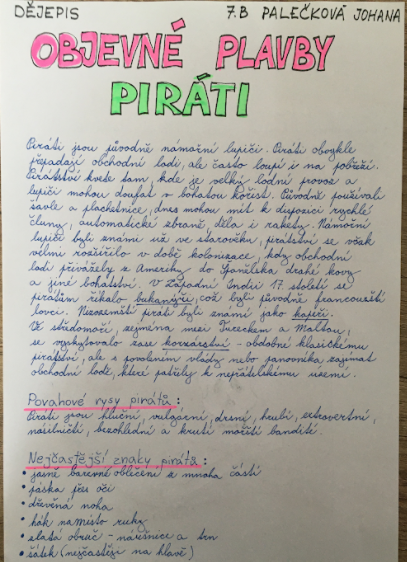 DĚJEPIS 7.B PALEČKOVÁ JOHANA
OBJEVNÉ PLAVBY
PIRÁTI
Piráti jsou původně námořní lupiči. Piráti obvykle
přepadají obchodní lodi, ale často loupí i na pobřeží.
Pirátství kvete tam, kde je velký lodní provoz a
lupiči mohou doufat v bohatou kořist. Původně používali
šavle a plachetnice, dnes mohou mít k dispozici rychlé
čluny, automatické zbraně, děla i rakety. Námořní
lupiči byli známi už ve starověku, pirátství se však
velmi rozšířilo v době kolonizace, kdy obchodní
lodi přivážely z Ameriky do Španělska drahé kovy
a jiné bohatství. V západní Indii 17. století se
pirátům říkalo bukanýři, což byli původně francouzští
lovci. Nizozemští piráti byli známi jako kapeři.
Ve středomoří, zejména mezi Tureckem a Maltou,
se vyskytovalo zase korzárství - obdobné klasickému
pirátství, ale s povolením vlády nebo panovníka zajímat
obchodní lodě, které patřily k nepřátelskému území.
Povahové rysy pirátů:
Piráti jsou hluční, vulgární, drsní, hrubí, extrovertní,
násilničtí, bezohlední a krutí mořští bandité.
Nejčastější znaky pirátů:
• jasné barevné oblečení z mnoha částí
• páska přes oči
• dřevěná noha
• hák namísto ruky
• zlatá obruč - náušnice a
• šátek (nejčastěji na hlavě)